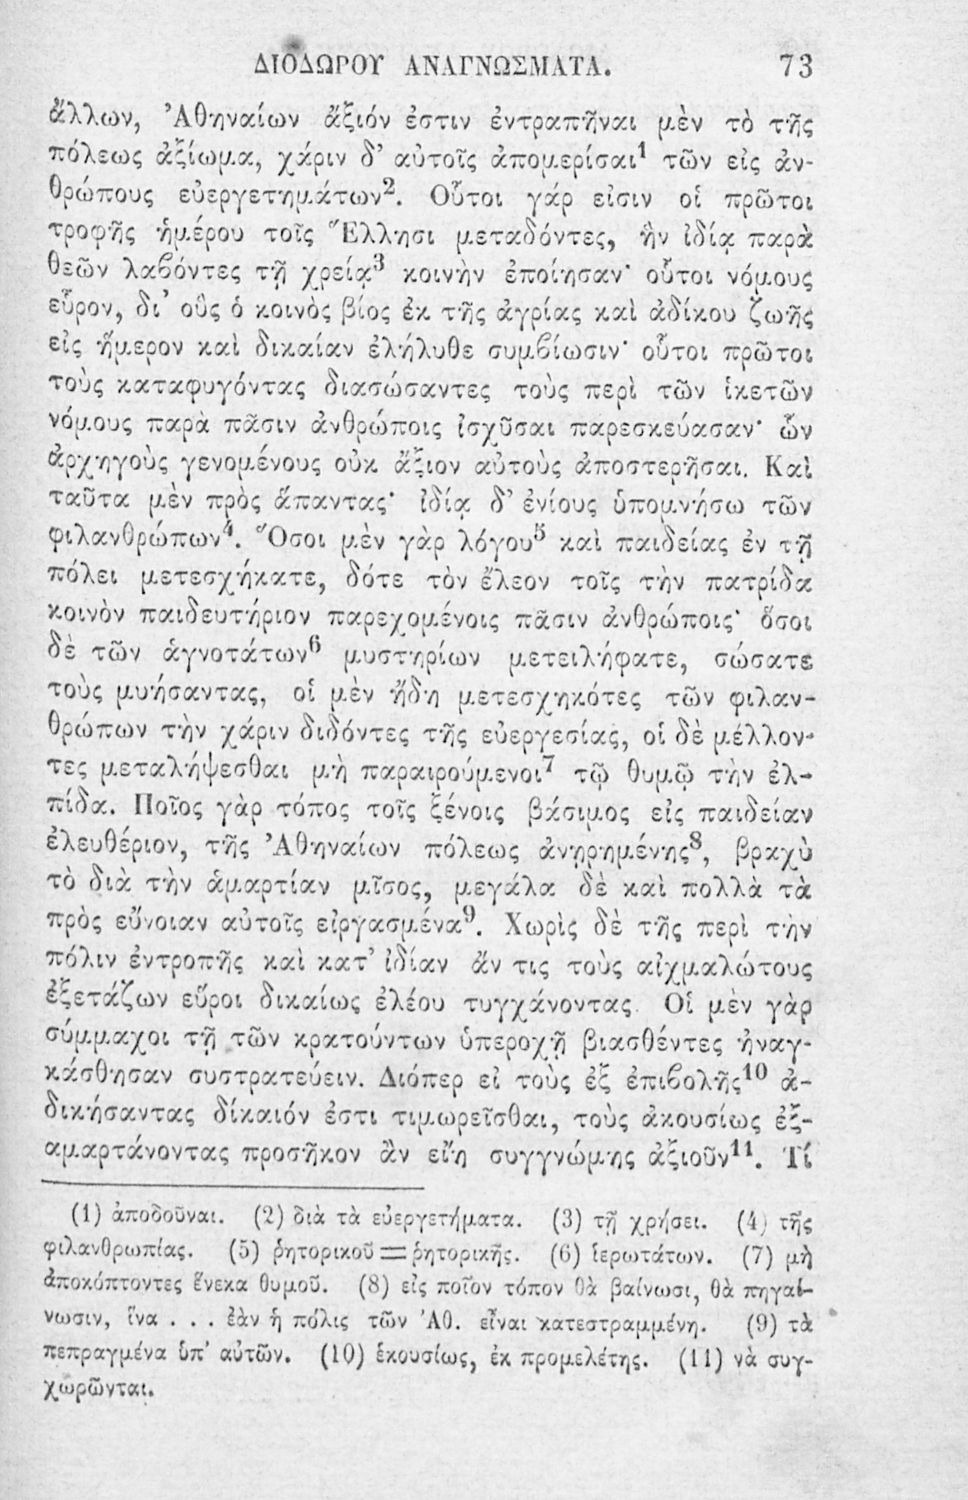 ΔΙΟΔΩΡΟΥ ΑΝΑΓΝΩΣΜΑΤΑ. 73
ἄλλων, Ἀθηναίων ἄξιόν ἐστιν ἐντραπῆναι μὲν τὸ τῆς
πόλεως ἀξίωμα, χάριν δ’ αὐτοῖς ἀπομερίσαι¹ τῶν εἰς ἀν-
θρώπους εὐεργετημάτων². Οὗτοι γάρ εἰσιν οἱ πρῶτοι
τροφῆς ἡμέρου τοῖς Ἕλλησι μεταδόντες, ἣν ἰδίᾳ παρὰ
θεῶν λαβόντες τῇ χρείᾳ³ κοινὴν ἐποίησαν· οὗτοι νόμους
εὗρον, δι’ οὓς ὁ κοινὸς βίος ἐκ τῆς ἀγρίας καὶ ἀδίκου ζωῆς
εἰς ἥμερον καὶ δικαίαν ἐλήλυθε συμβίωσιν· οὗτοι πρῶτοι
τοὺς καταφυγόντας διασώσαντες τοὺς περὶ τῶν ἱκετῶν
νόμους παρὰ πᾶσιν ἀνθρώποις ἰσχῦσαι παρεσκεύασαν· ὧν
ἀρχηγοὺς γενομένους οὐκ ἄξιον αὐτοὺς ἀποστερῆσαι. Καὶ
ταῦτα μὲν πρὸς ἅπαντας· ἰδίᾳ δ’ ἐνίους ὑπομνήσω τῶν
φιλανθρώπων⁴. Ὅσοι μὲν γὰρ λόγου⁵ καὶ παιδείας ἐν τῇ
πόλει μετεσχήκατε, δότε τὸν ἔλεον τοῖς τὴν πατρίδα
κοινὸν παιδευτήριον παρεχομένοις πᾶσιν ἀνθρώποις· ὅσοι
δὲ τῶν ἁγνοτάτων⁶ μυστηρίων μετειλήφατε, σώσατε
τοὺς μυήσαντας, οἱ μὲν ἤδη μετεσχηκότες τῶν φιλαν-
θρώπων τὴν χάριν διδόντες τῆς εὐεργεσίας, οἱ δὲ μέλλον-
τες μεταλήψεσθαι μὴ παραιρούμενοι⁷ τῷ θυμῷ τὴν ἐλ-
πίδα. Ποῖος γὰρ τόπος τοῖς ξένοις βάσιμος εἰς παιδείαν
ἐλευθέριον, τῆς Ἀθηναίων πόλεως ἀνῃρημένης⁸, βραχὺ
τὸ διὰ τὴν ἁμαρτίαν μῖσος, μεγάλα δὲ καὶ πολλὰ τὰ
πρὸς εὔνοιαν αὐτοῖς εἰργασμένα⁹. Χωρὶς δὲ τῆς περὶ τὴν
πόλιν ἐντροπῆς καὶ κατ’ ἰδίαν ἄν τις τοὺς αἰχμαλώτους
ἐξετάζων εὕροι δικαίως ἐλέου τυγχάνοντας. Οἱ μὲν γὰρ
σύμμαχοι τῇ τῶν κρατούντων ὑπεροχῇ βιασθέντες ἠναγ-
κάσθησαν συστρατεύειν. Διόπερ εἰ τοὺς ἐξ ἐπιβολῆς¹⁰ ἀ-
δικήσαντας δίκαιόν ἐστι τιμωρεῖσθαι, τοὺς ἀκουσίως ἐξ-
αμαρτάνοντας προσῆκον ἂν εἴη συγγνώμης ἀξιοῦν¹¹. Τί
(1) ἀποδοῦναι. (2) διὰ τὰ εὐεργετήματα. (3) τῇ χρήσει. (4) τῆς
φιλανθρωπίας. (5) ῥητορικοῦ = ῥητορικῆς. (6) ἱερωτάτων. (7) μὴ
ἀποκόπτοντες ἕνεκα θυμοῦ. (8) εἰς ποῖον τόπον θὰ βαίνωσι, θὰ πηγαί-
νωσιν, ἵνα . . . ἐὰν ἡ πόλις τῶν Ἀθ. εἶναι κατεστραμμένη. (9) τὰ
πεπραγμένα ὑπ’ αὐτῶν. (10) ἑκουσίως, ἐκ προμελέτης. (11) νὰ συγ-
χωρῶνται.